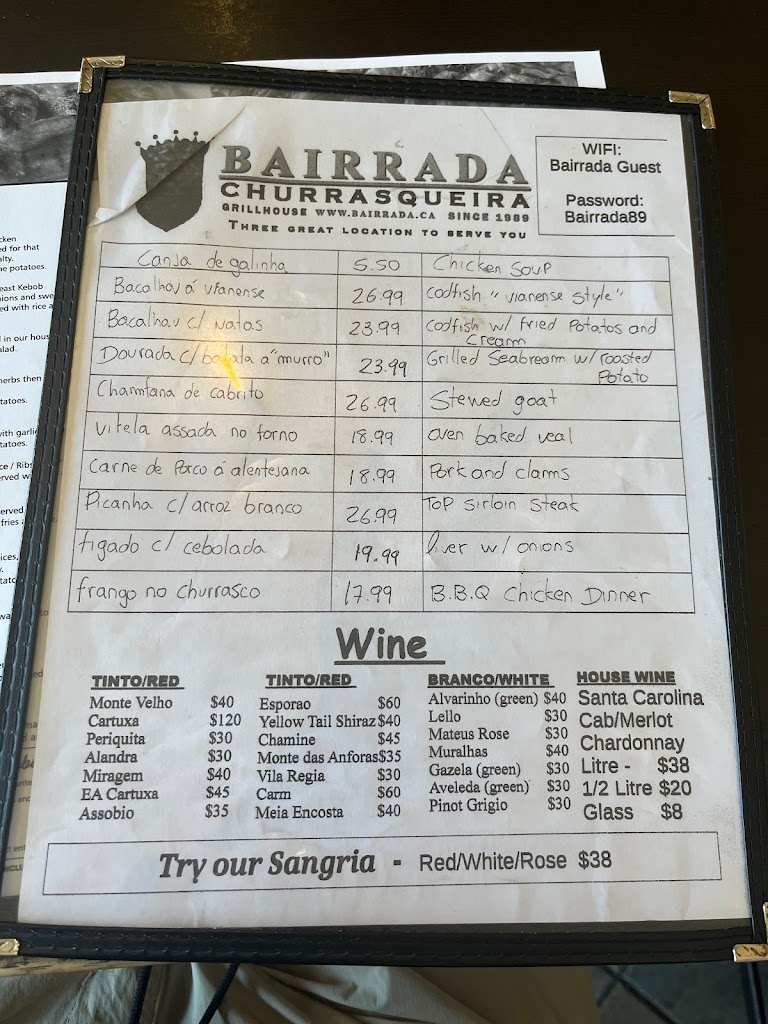 BAIRRADA
CHURRASQUEIRA
GRILLHOUSE WWW.BAIRRADA.CA SINCE 1989
THREE GREAT LOCATION TO SERVE YOU
WIFI:
Bairrada Guest
Password:
Bairrada89
Canja de galinha 5.50 Chicken Soup
Bacalhau á vianense 26.99 codfish "vianense style"
Bacalhau c/ natas 23.99 codfish w/ fried Potatos and
Cream
Dourada c/ batata a "murro" 23.99 Grilled Seabream w/ roasted
Potato
Chanfana de cabrito 26.99 Stewed goat
Vitela assada no forno 18.99 oven baked veal
Carne de Porco á alentejana 18.99 Pork and clams
Picanha c/ arroz branco 26.99 Top Sirloin Steak
figado c/ cebolada 19.99 liver w/ onions
frango no Churrasco 17.99 B.B.Q Chicken Dinner
Wine
TINTO/RED
Monte Velho $40
Cartuxa $120
Periquita $30
Alandra $30
Miragem $40
EA Cartuxa $45
Assobio $35
TINTO/RED
Esporao $60
Yellow Tail Shiraz $40
Chamine $45
Monte das Anforas $35
Vila Regia $30
Carm $60
Meia Encosta $40
BRANCO/WHITE
Alvarinho (green) $40
Lello $30
Mateus Rose $30
Muralhas $40
Gazela (green) $30
Aveleda (green) $30
Pinot Grigio $30
HOUSE WINE
Santa Carolina
Cab/Merlot
Chardonnay
Litre - $38
1/2 Litre $20
Glass $8
Try our Sangria - Red/White/Rose $38